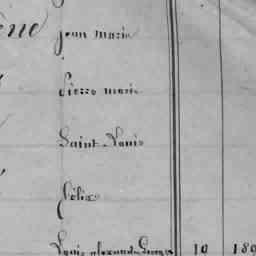 ène Jean Marie
Pierre Marie
Saint Louis
Félix
Louis alexandre Georges 10 180